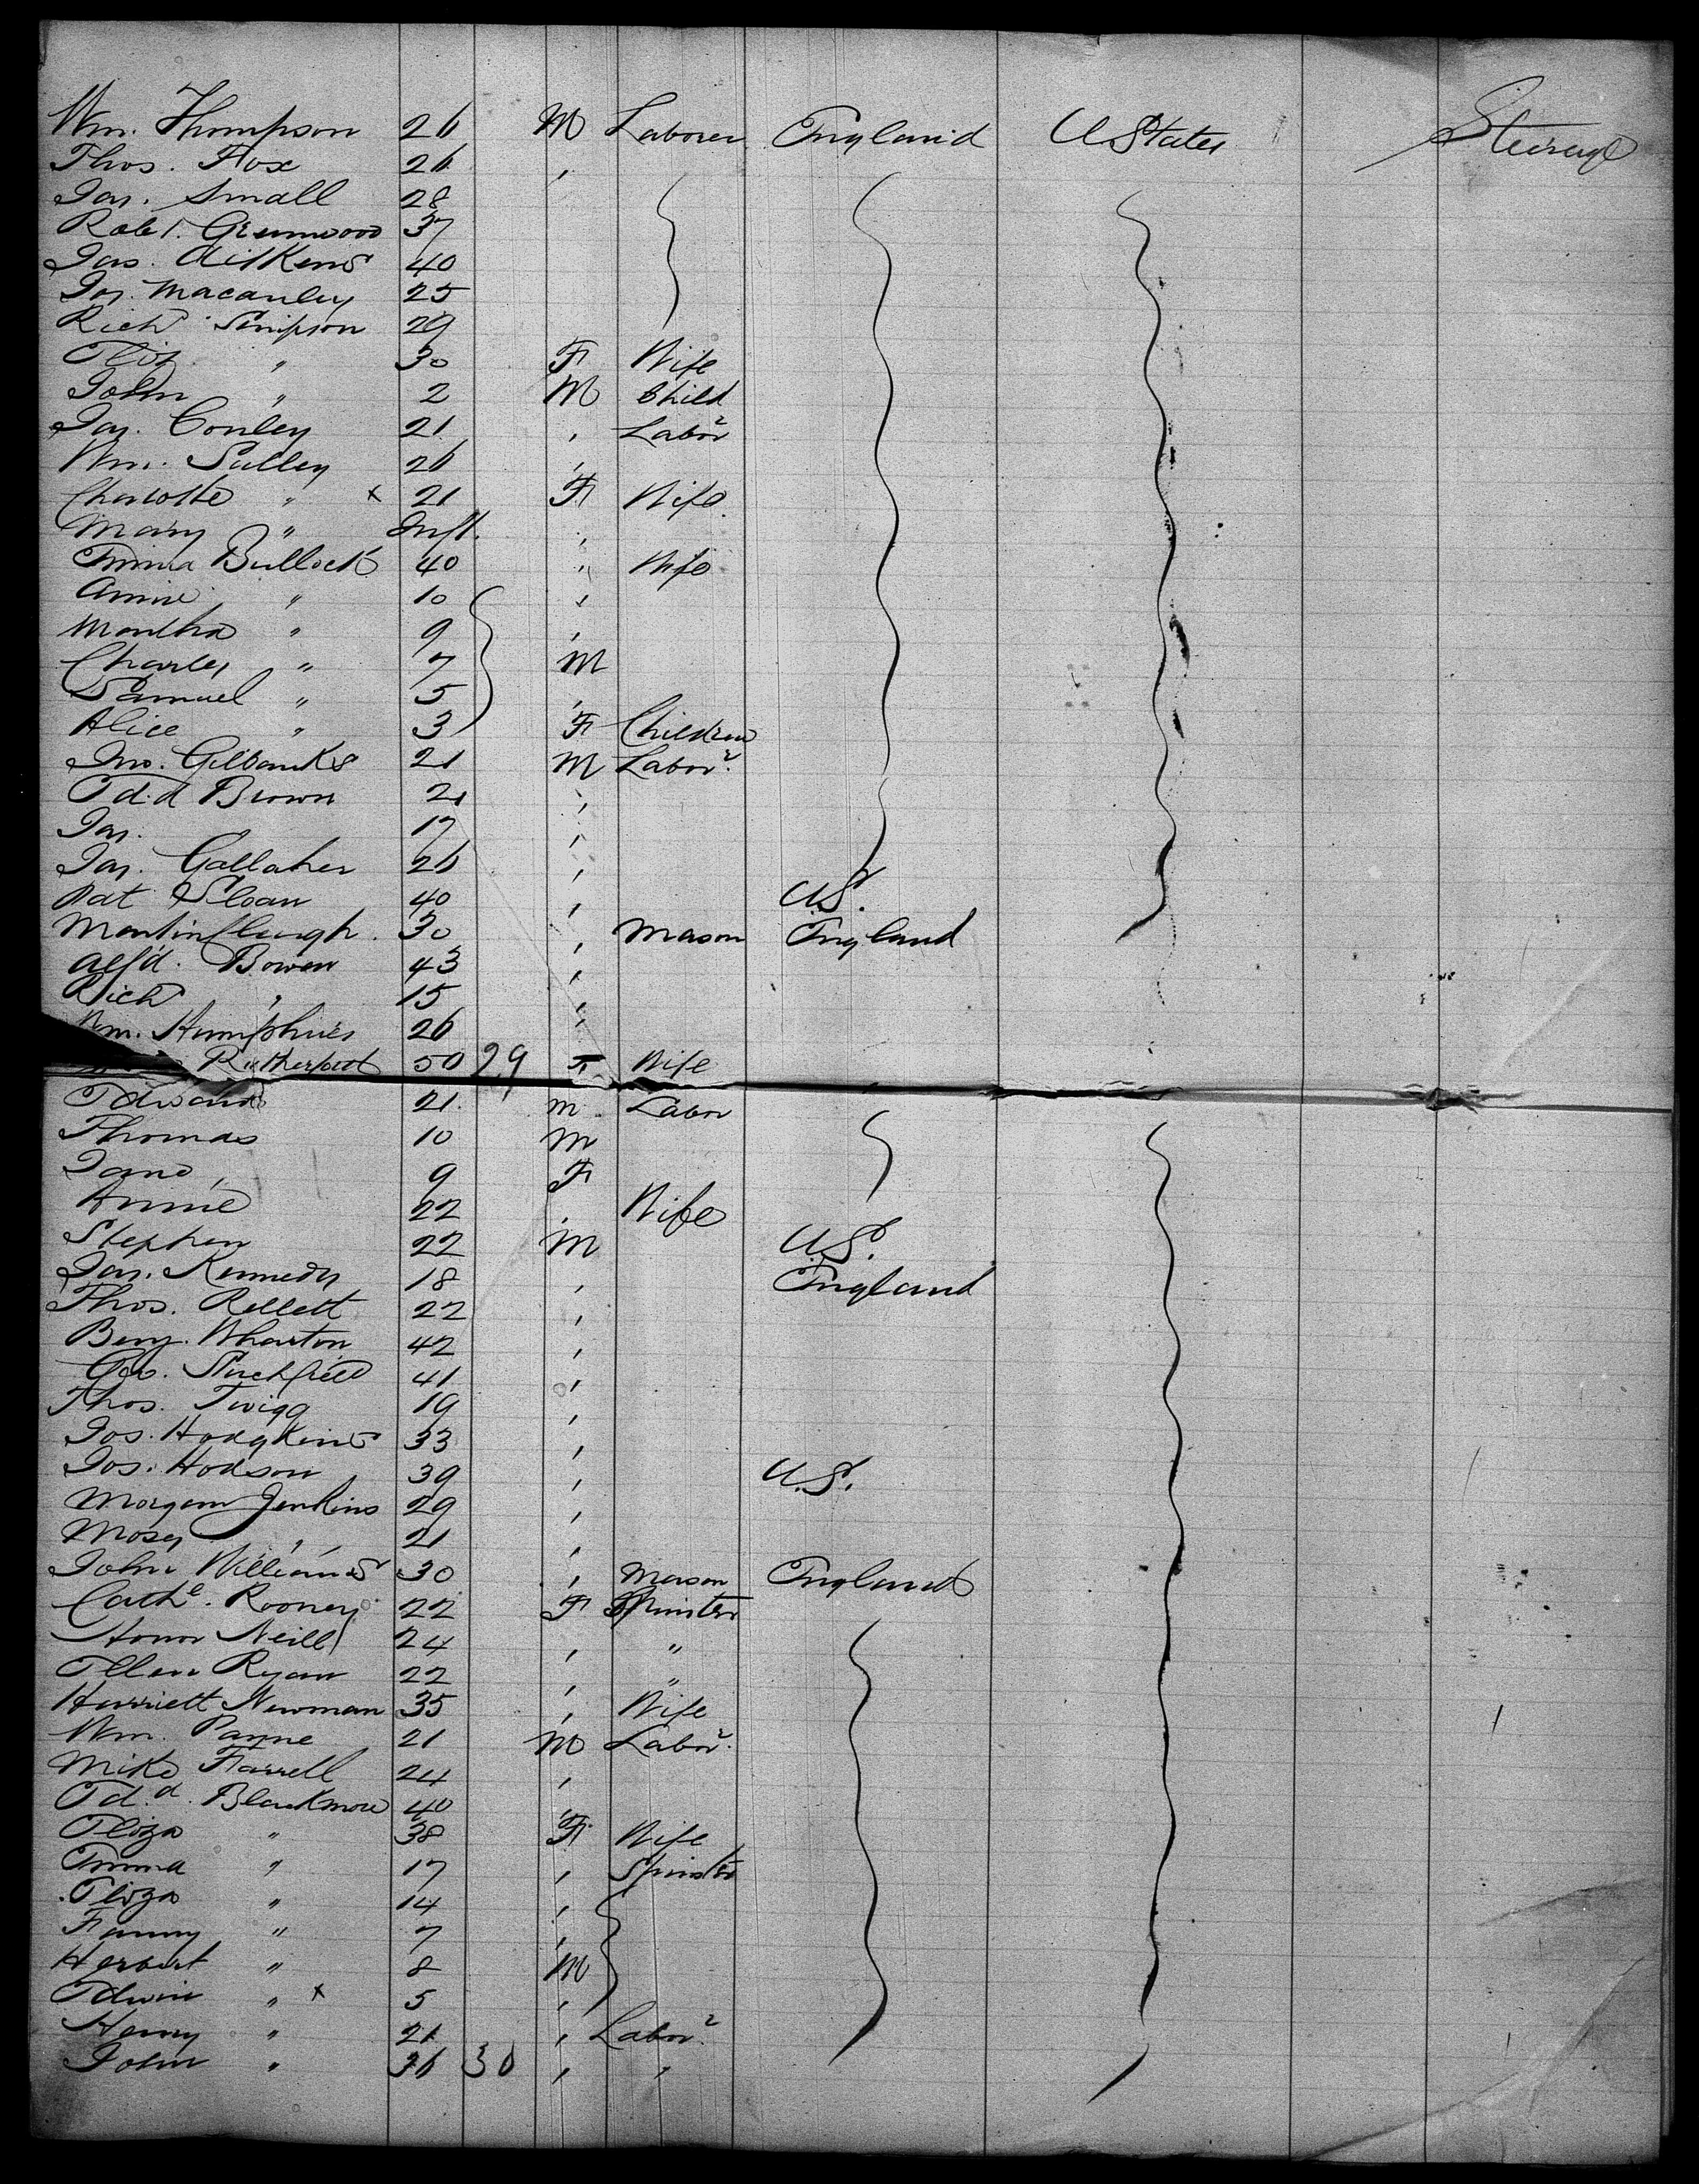 Wm. Thompson 26 M Laborer England U States Steerage
Thos. Fox 26 ,
Jas. Small 28
Robt. Greenwood 37
Jas. Aitkens 40
Jas. Macauley 25
Richd Simpson 29
Eliz " 30 F Wife
John " 2 M Child
Jas. Conley 21 , Labor
Wm. Sulley 26 ,
Charlotte " x 21 F Wife
Mary " Inft. ,
Emma Bullock 40 " Wife
Annie " 10 ,
Martha " 9 ,
Charles " 7 M
Samuel " 5 ,
Alice " 3 F Children
Jno. Gilbanks 21 M Labor.
Ed.d Brown 21 ,
Jas. 17 ,
Jas. Gallaher 26 ,
Pat Sloan 40 , US.
Martin 30 , Mason England
Alfd. Bowen 43 ,
Richd " 15 ,
Wm. Humphries 26 ,
50 29 F Wife
Edward 21 M Labor
Thomas 10 M
Jane 9 F
Annie 22 , Wife
Stephen 22 M US.
Jas. Kennedy 18 , England
Thos. Rellett 22 ,
Benj. Wharton 42 ,
Geo. 41 ,
Thos. Twigg 19 ,
Jos. Hodgkins 33 ,
Jos. Hodson 39 , U.S.
Morgan Jenkins 29 ,
Moses " 21 ,
John Williams 30 , Mason England
Cathe. Rooney 22 F Spinster
Honor Neill 24 , "
Ellen Ryan 22 , "
Harriett Newman 35 , Wife
Wm. Payne 21 M Labor.
Mike Farrell 24 ,
Ed.d. Blackmore 40 ,
Eliza " 38 F Wife
Emma " 17 , Spinster
Eliza " 14 ,
Fanny " 7 ,
Herbert " 8 M
Edwin " x 5 ,
Henry " 21 , Labor.
John " 36 30 , ,